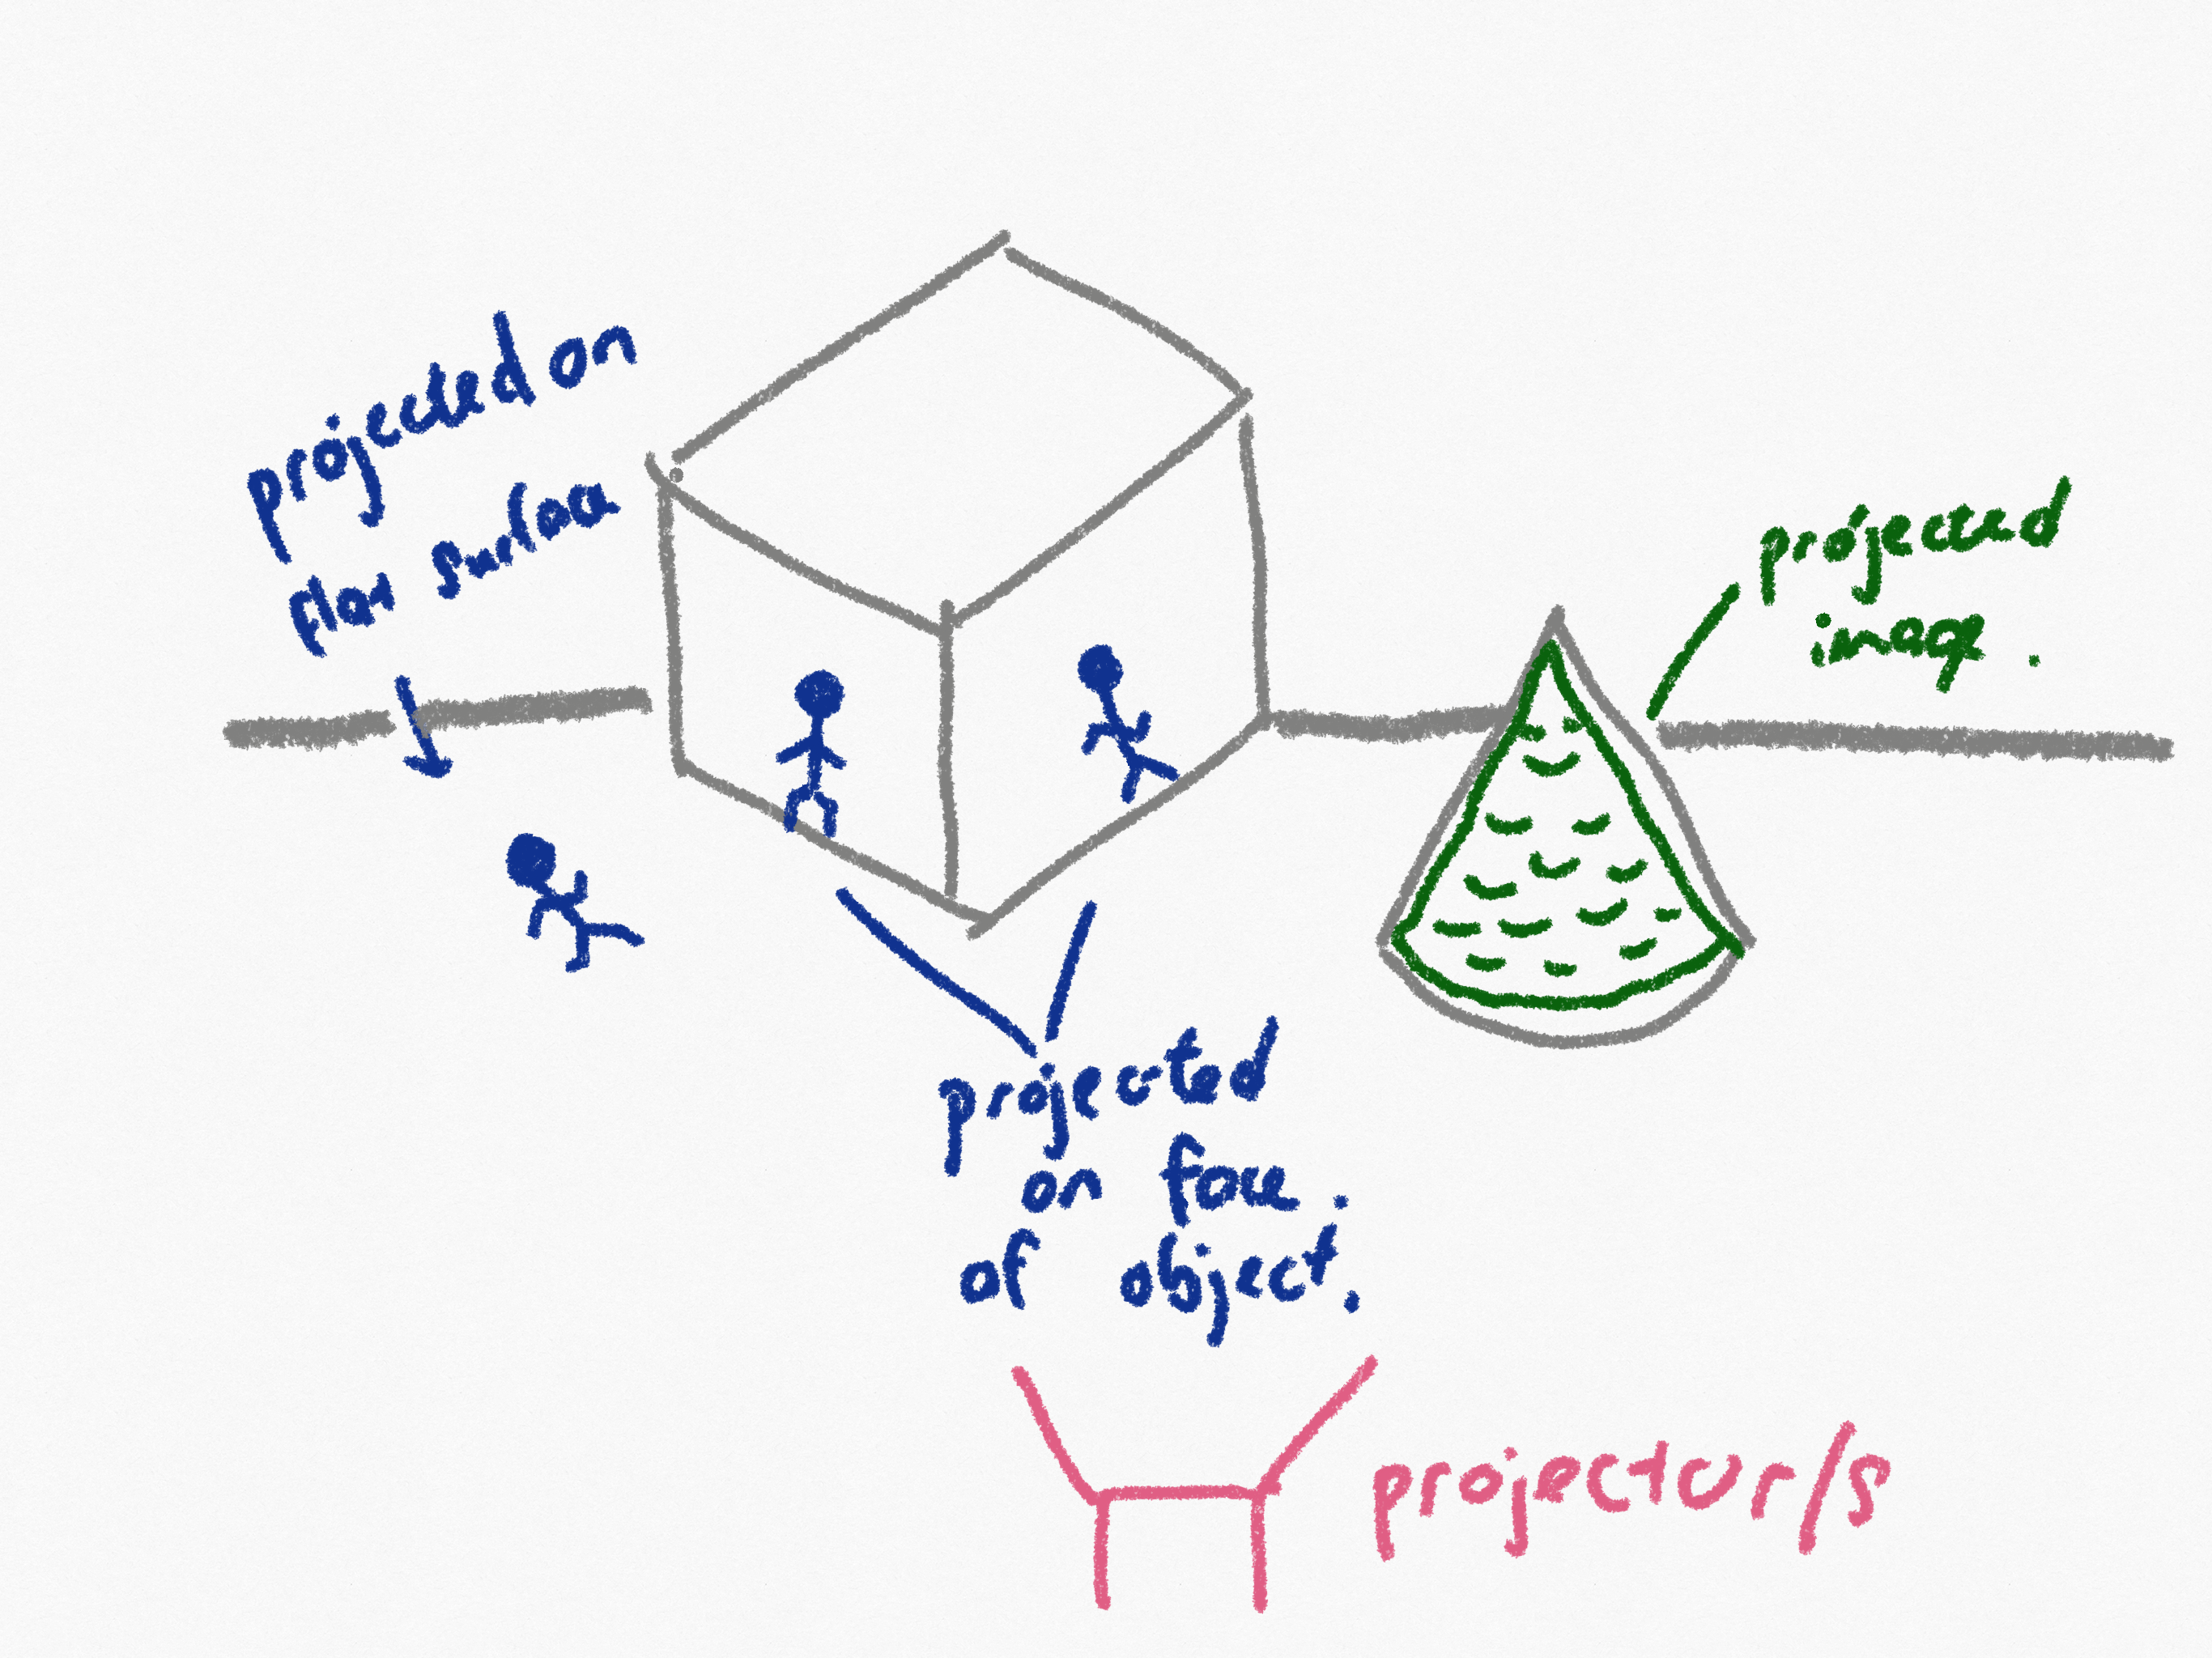 projected on
flat surface
projected
image.
projected
on face.
of object.
projector/s